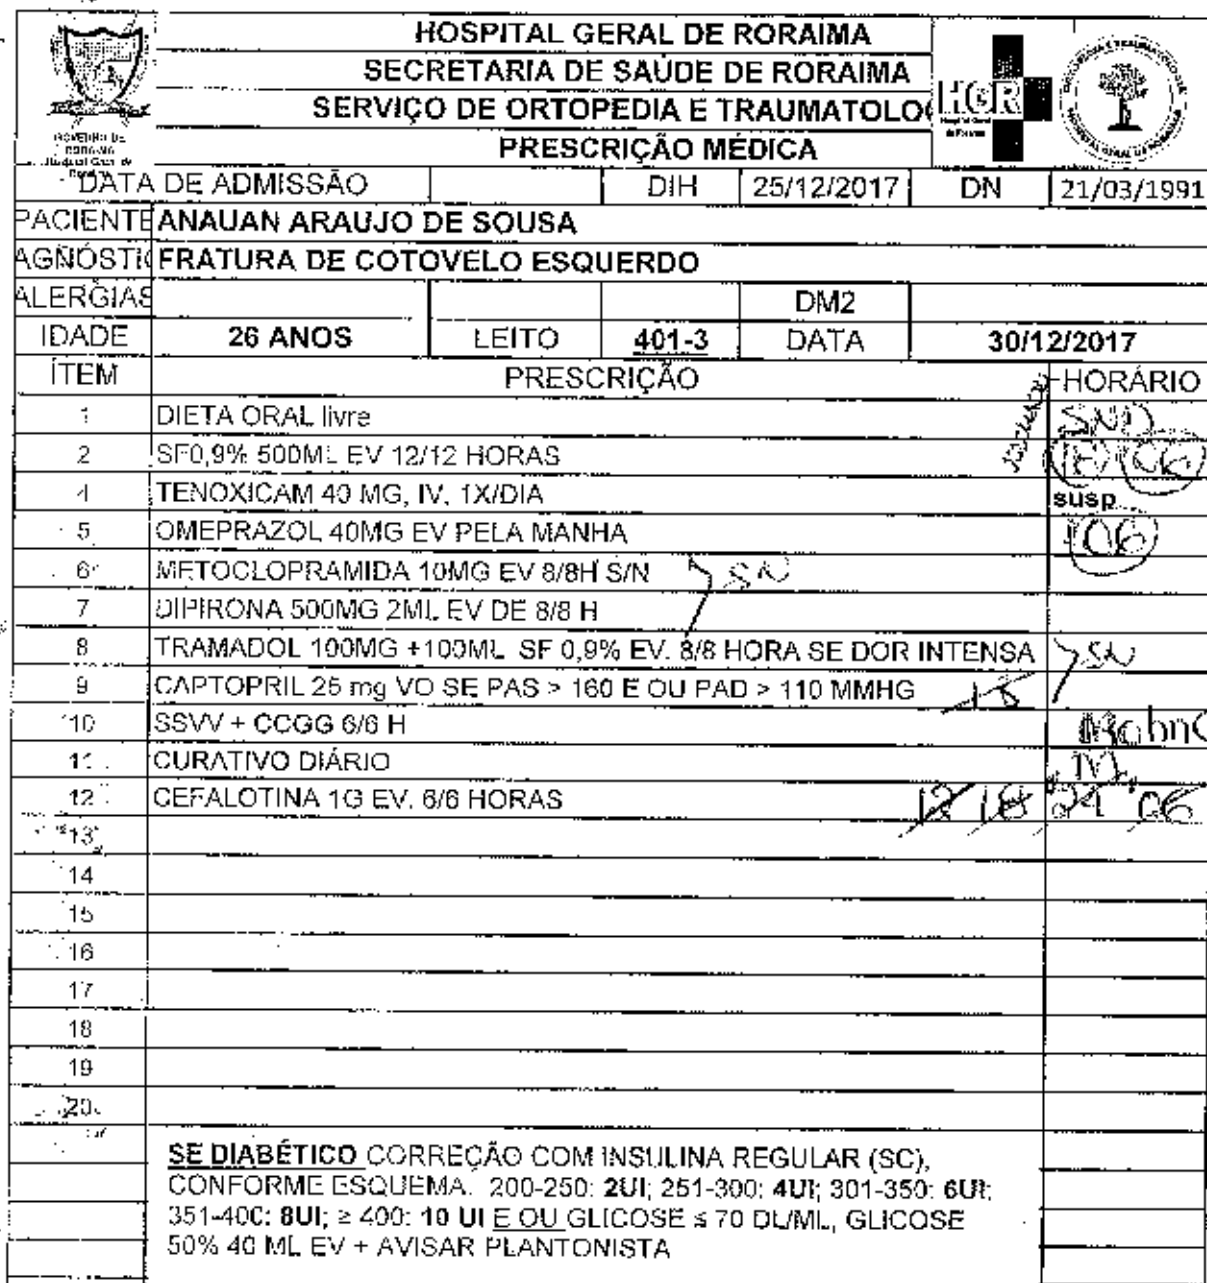 HOSPITAL GERAL DE RORAIMA
SECRETARIA DE SAÚDE DE RORAIMA
SERVIÇO DE ORTOPEDIA E TRAUMATOLO
PRESCRIÇÃO MÉDICA
GOVERNO DE RORAIMA
HGR
DATA DE ADMISSÃO DIH 25/12/2017 DN 21/03/1991
PACIENTE ANAUAN ARAUJO DE SOUSA
AGNÓSTI FRATURA DE COTOVELO ESQUERDO
ALERGIAS DM2
IDADE 26 ANOS LEITO 401-3 DATA 30/12/2017
ÍTEM PRESCRIÇÃO HORÁRIO
1 DIETA ORAL livre SND
2 SF0,9% 500ML EV 12/12 HORAS 18 06
4 TENOXICAM 40 MG, IV, 1X/DIA susp
5 OMEPRAZOL 40MG EV PELA MANHA 06
6 METOCLOPRAMIDA 10MG EV 8/8H S/N SN
7 DIPIRONA 500MG 2ML EV DE 8/8 H
8 TRAMADOL 100MG +100ML SF 0,9% EV. 8/8 HORA SE DOR INTENSA SN
9 CAPTOPRIL 25 mg VO SE PAS > 160 E OU PAD > 110 MMHG 18
10 SSVV + CCGG 6/6 H
11 CURATIVO DIÁRIO
12 CEFALOTINA 1G EV. 6/6 HORAS 12 18 24 06
13
14
15
16
17
18
19
20
SE DIABÉTICO CORREÇÃO COM INSULINA REGULAR (SC),
CONFORME ESQUEMA. 200-250: 2UI; 251-300: 4UI; 301-350: 6UI;
351-400: 8UI; ≥ 400: 10 UI E OU GLICOSE ≤ 70 DL/ML, GLICOSE
50% 40 ML EV + AVISAR PLANTONISTA